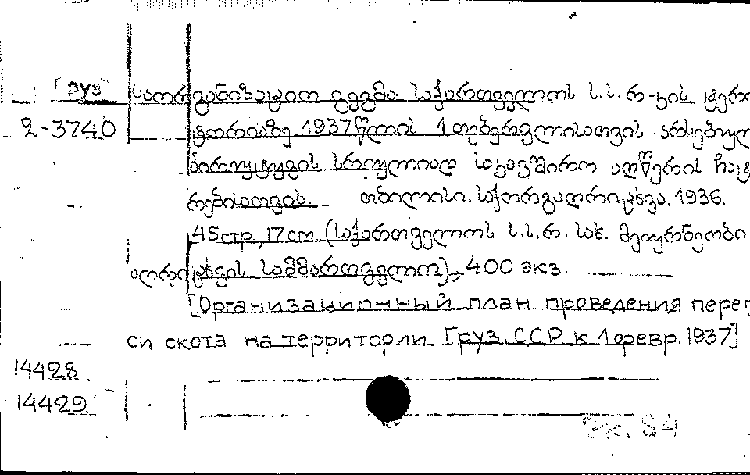 Груз
2-3740
საორგანიზაციო გეგმა საქართველოს ს.ს.რ-ის ტერი
ტორიაზე 1937 წლის 1 თებერვლისათვის არსებულ
პირუტყვის სრულიად საკავშირო აღწერის ჩატ
რებისათვის. თბილისი. საქორგაღრიცხვა, 1936.
45стр, 17см. (საქართველოს ს.ს.რ. სახ. მეურნეობი
აღრიცხვის სამმართველო), 400 экз.
[Организационный план проведения перепи
си скота на территории Груз. ССР к 1 февр. 1937]
14428
14429
Эк. 84